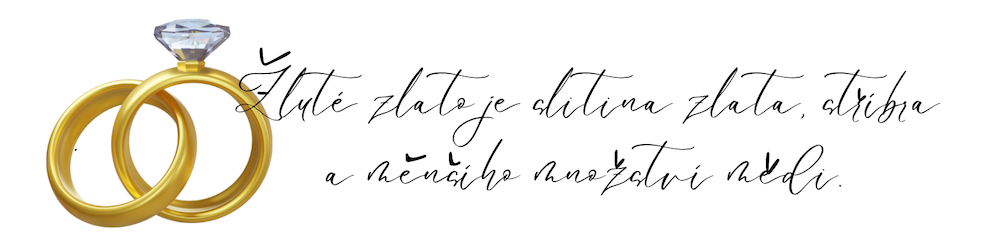 Žluté zlato je slitina zlata, stříbra
a měnšího množství mědi.